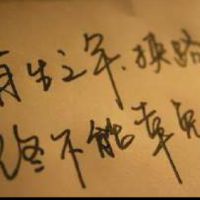 再生之年.换路
终不能幸免